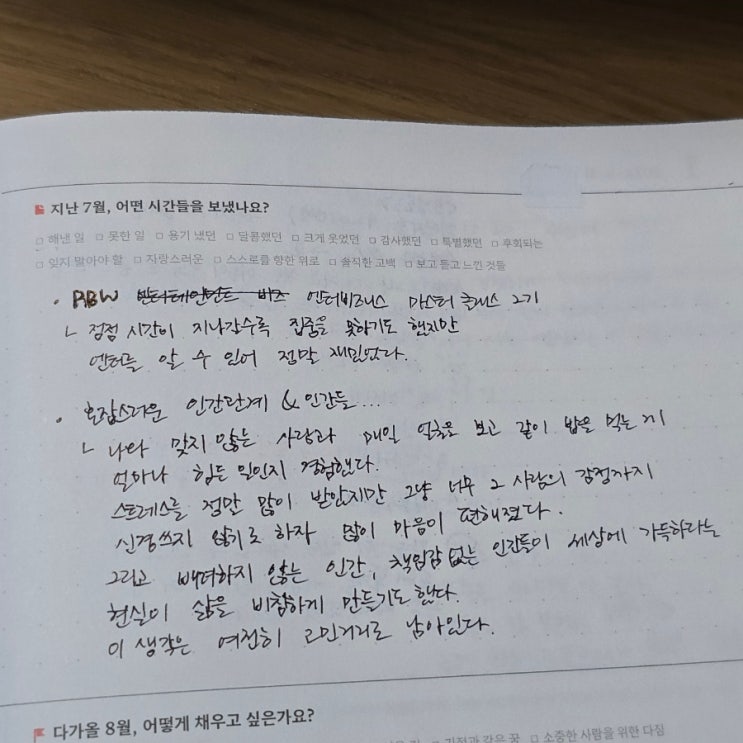 지난 7월, 어떤 시간들을 보냈나요?
□ 해낸 일 □ 못한 일 □ 용기 냈던 □ 달콤했던 □ 크게 웃었던 □ 감사했던 □ 특별했던 □ 후회되는
□ 잊지 말아야 할 □ 자랑스러운 □ 스스로를 향한 위로 □ 솔직한 고백 □ 보고 듣고 느낀 것들
• RBW 엔터테인먼트 비즈 엔터비즈니스 마스터 클래스 2기
ㄴ 점점 시간이 지나갈수록 집중을 못하기도 했지만
엔터를 알 수 있어 정말 재밌었다.
• 혼잡스러운 인간관계 & 인간들...
ㄴ 나와 맞지 않는 사람과 매일 얼굴을 보고 같이 밥을 먹는 게
얼마나 힘든 일인지 경험했다.
스트레스를 정말 많이 받았지만 그냥 너무 그 사람의 감정까지
신경쓰지 않기로 하자 많이 마음이 편해졌다.
그리고 배려하지 않는 인간, 책임감 없는 인간들이 세상에 가득하다는
현실이 삶을 비참하게 만들기도 했다.
이 생각은 여전히 고민거리로 남아있다.
다가올 8월, 어떻게 채우고 싶은가요?
□ 소중한 사람을 위한 다짐